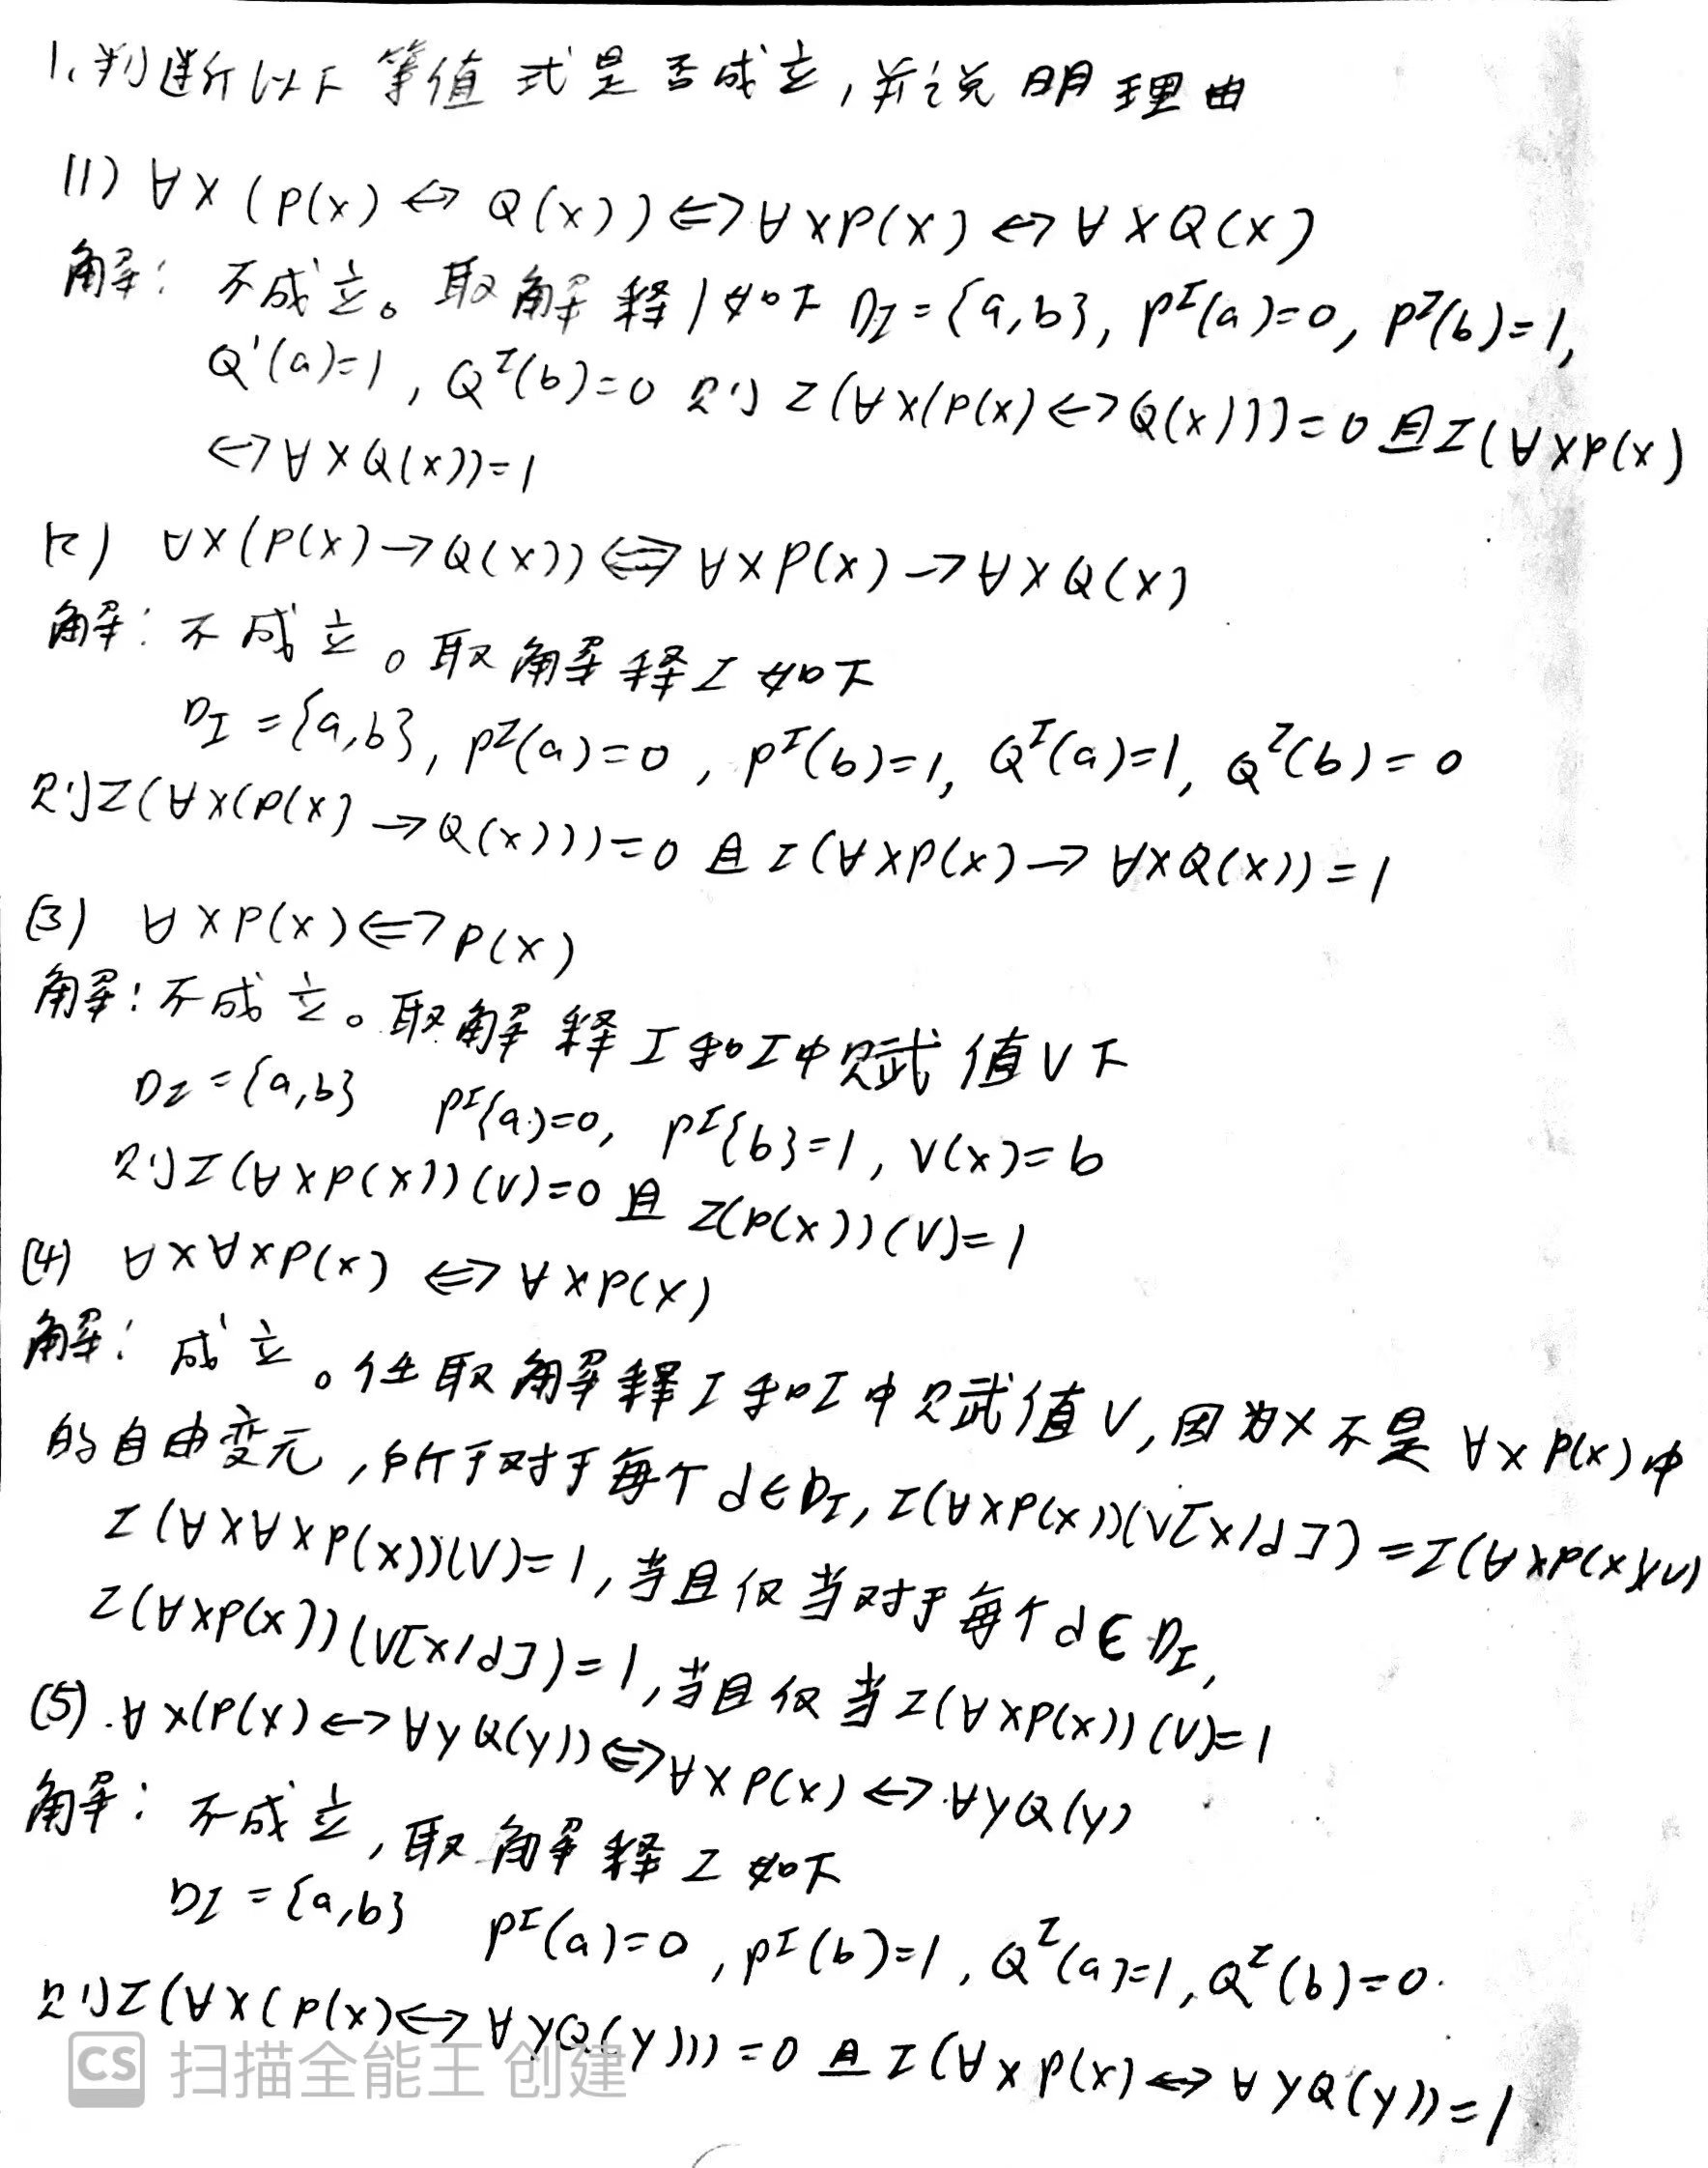 1、判断以下等值式是否成立,并说明理由
(1) ∀x(P(x)↔Q(x))⇔∀xP(x)↔∀xQ(x)
解: 不成立。取解释I如下 D_I={a,b}, P^I(a)=0, P^I(b)=1,
Q'(a)=1, Q^I(b)=0 则 I(∀x(P(x)↔Q(x)))=0 且 I(∀xP(x)
↔∀xQ(x))=1
(2) ∀x(P(x)→Q(x))⇔∀xP(x)→∀xQ(x)
解: 不成立。取解释I如下
D_I={a,b}, P^I(a)=0, P^I(b)=1, Q^I(a)=1, Q^I(b)=0
则I(∀x(P(x)→Q(x)))=0 且 I(∀xP(x)→∀xQ(x))=1
(3) ∀xP(x)⇔P(x)
解:不成立。取解释I和I中赋值V下
D_I={a,b} P^I(a)=0, P^I{b}=1, V(x)=b
则I(∀xP(x))(V)=0 且 I(P(x))(V)=1
(4) ∀x∀xP(x)⇔∀xP(x)
解: 成立。任取解释I和I中赋值V,因为x不是∀xP(x)中
的自由变元,所于对于每个d∈D_I, I(∀xP(x))(V[x/d])=I(∀xP(x))(V)
I(∀x∀xP(x))(V)=1,当且仅当对于每个d∈D_I,
I(∀xP(x))(V[x/d])=1,当且仅当I(∀xP(x))(V)=1
(5).∀x(P(x)↔∀yQ(y))⇔∀xP(x)↔∀yQ(y)
解: 不成立,取解释I如下
D_I={a,b} P^I(a)=0, P^I(b)=1, Q^I(a)=1, Q^I(b)=0.
则I(∀x(P(x)↔∀yQ(y)))=0 且 I(∀xP(x)↔∀yQ(y))=1
CS 扫描全能王 创建